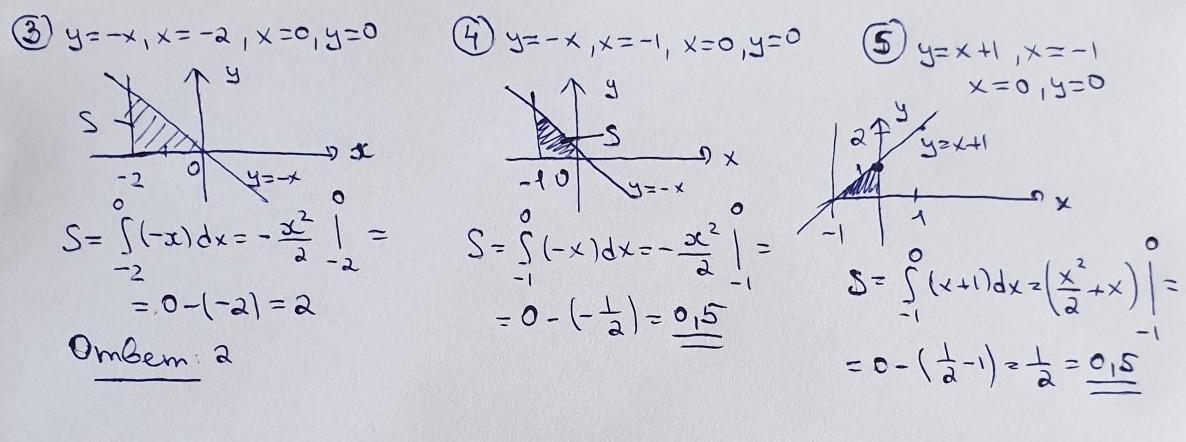 ③ y=-x, x=-2, x=0, y=0
y
S
x
-2
0
y=-x
S= ∫₋₂⁰ (-x)dx = -x²/2 |₋₂⁰ =
= 0-(-2) = 2
Ответ: 2
④ y=-x, x=-1, x=0, y=0
y
S
x
-1 0
y=-x
S= ∫₋₁⁰ (-x)dx = -x²/2 |₋₁⁰ =
= 0-(-1/2) = 0,5
⑤ y=x+1, x=-1
x=0, y=0
y
2
y=x+1
1
x
-1
1
S= ∫₋₁⁰ (x+1)dx = (x²/2 +x) |₋₁⁰ =
= 0-(1/2 -1) = 1/2 = 0,5